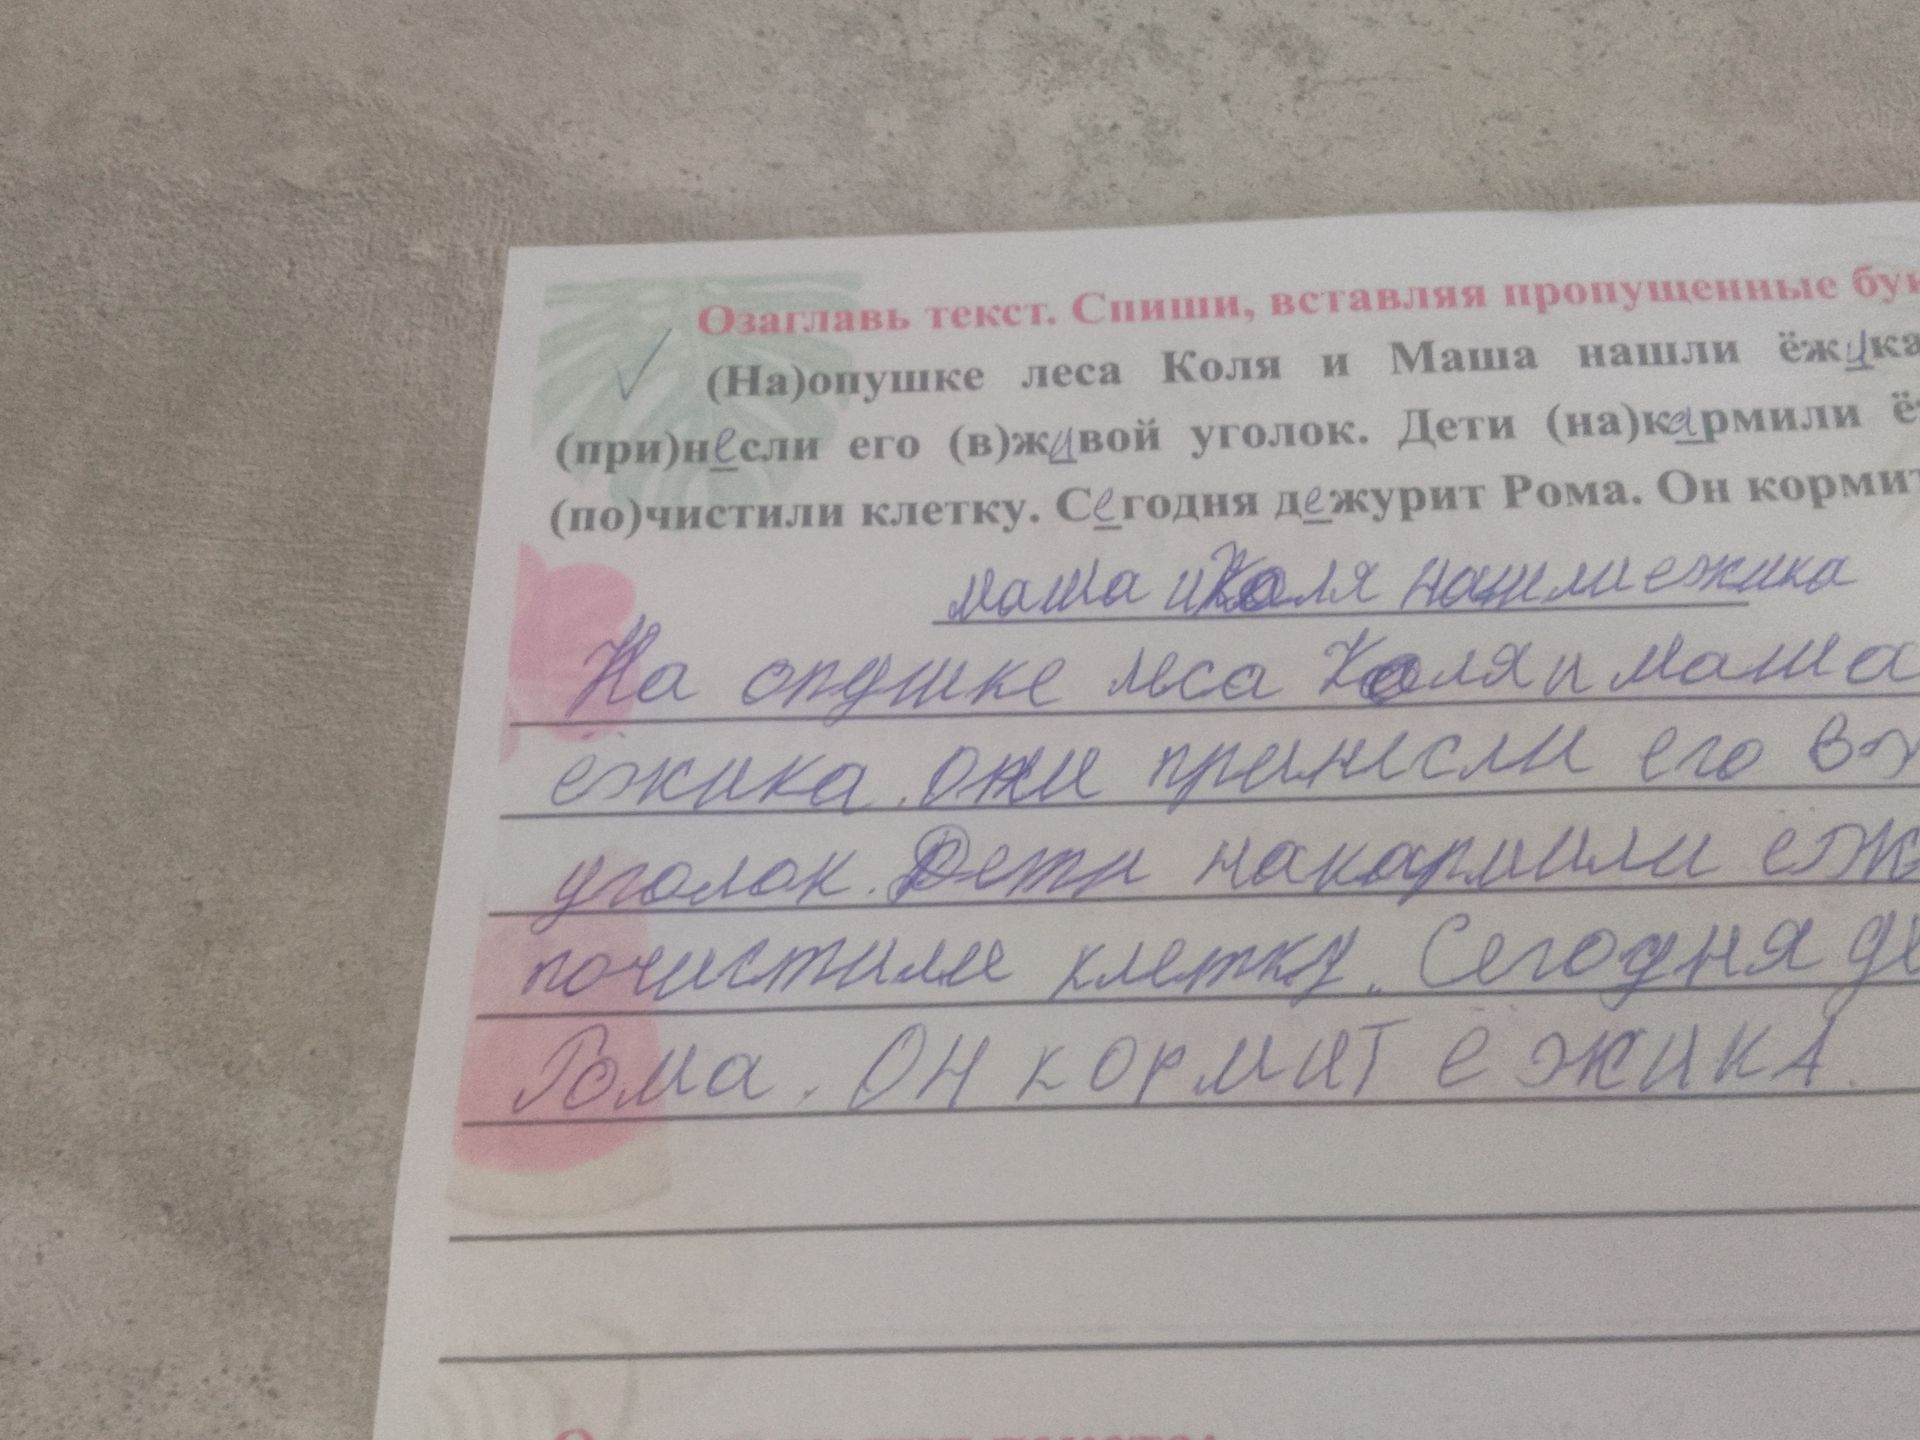 Озаглавь текст. Спиши, вставляя пропущенные бук
(На)опушке леса Коля и Маша нашли ёжика
(при)несли его (в)живой уголок. Дети (на)кармили ё
(по)чистили клетку. Сегодня дежурит Рома. Он кормит
маша и Коля нашли ежика
На опушке леса Коля и маша
ёжика. они принесли его в ж
уголок. Дети накармили ёж
почистили клетку. Сегодня де
Рома. Он кормит ёжика.